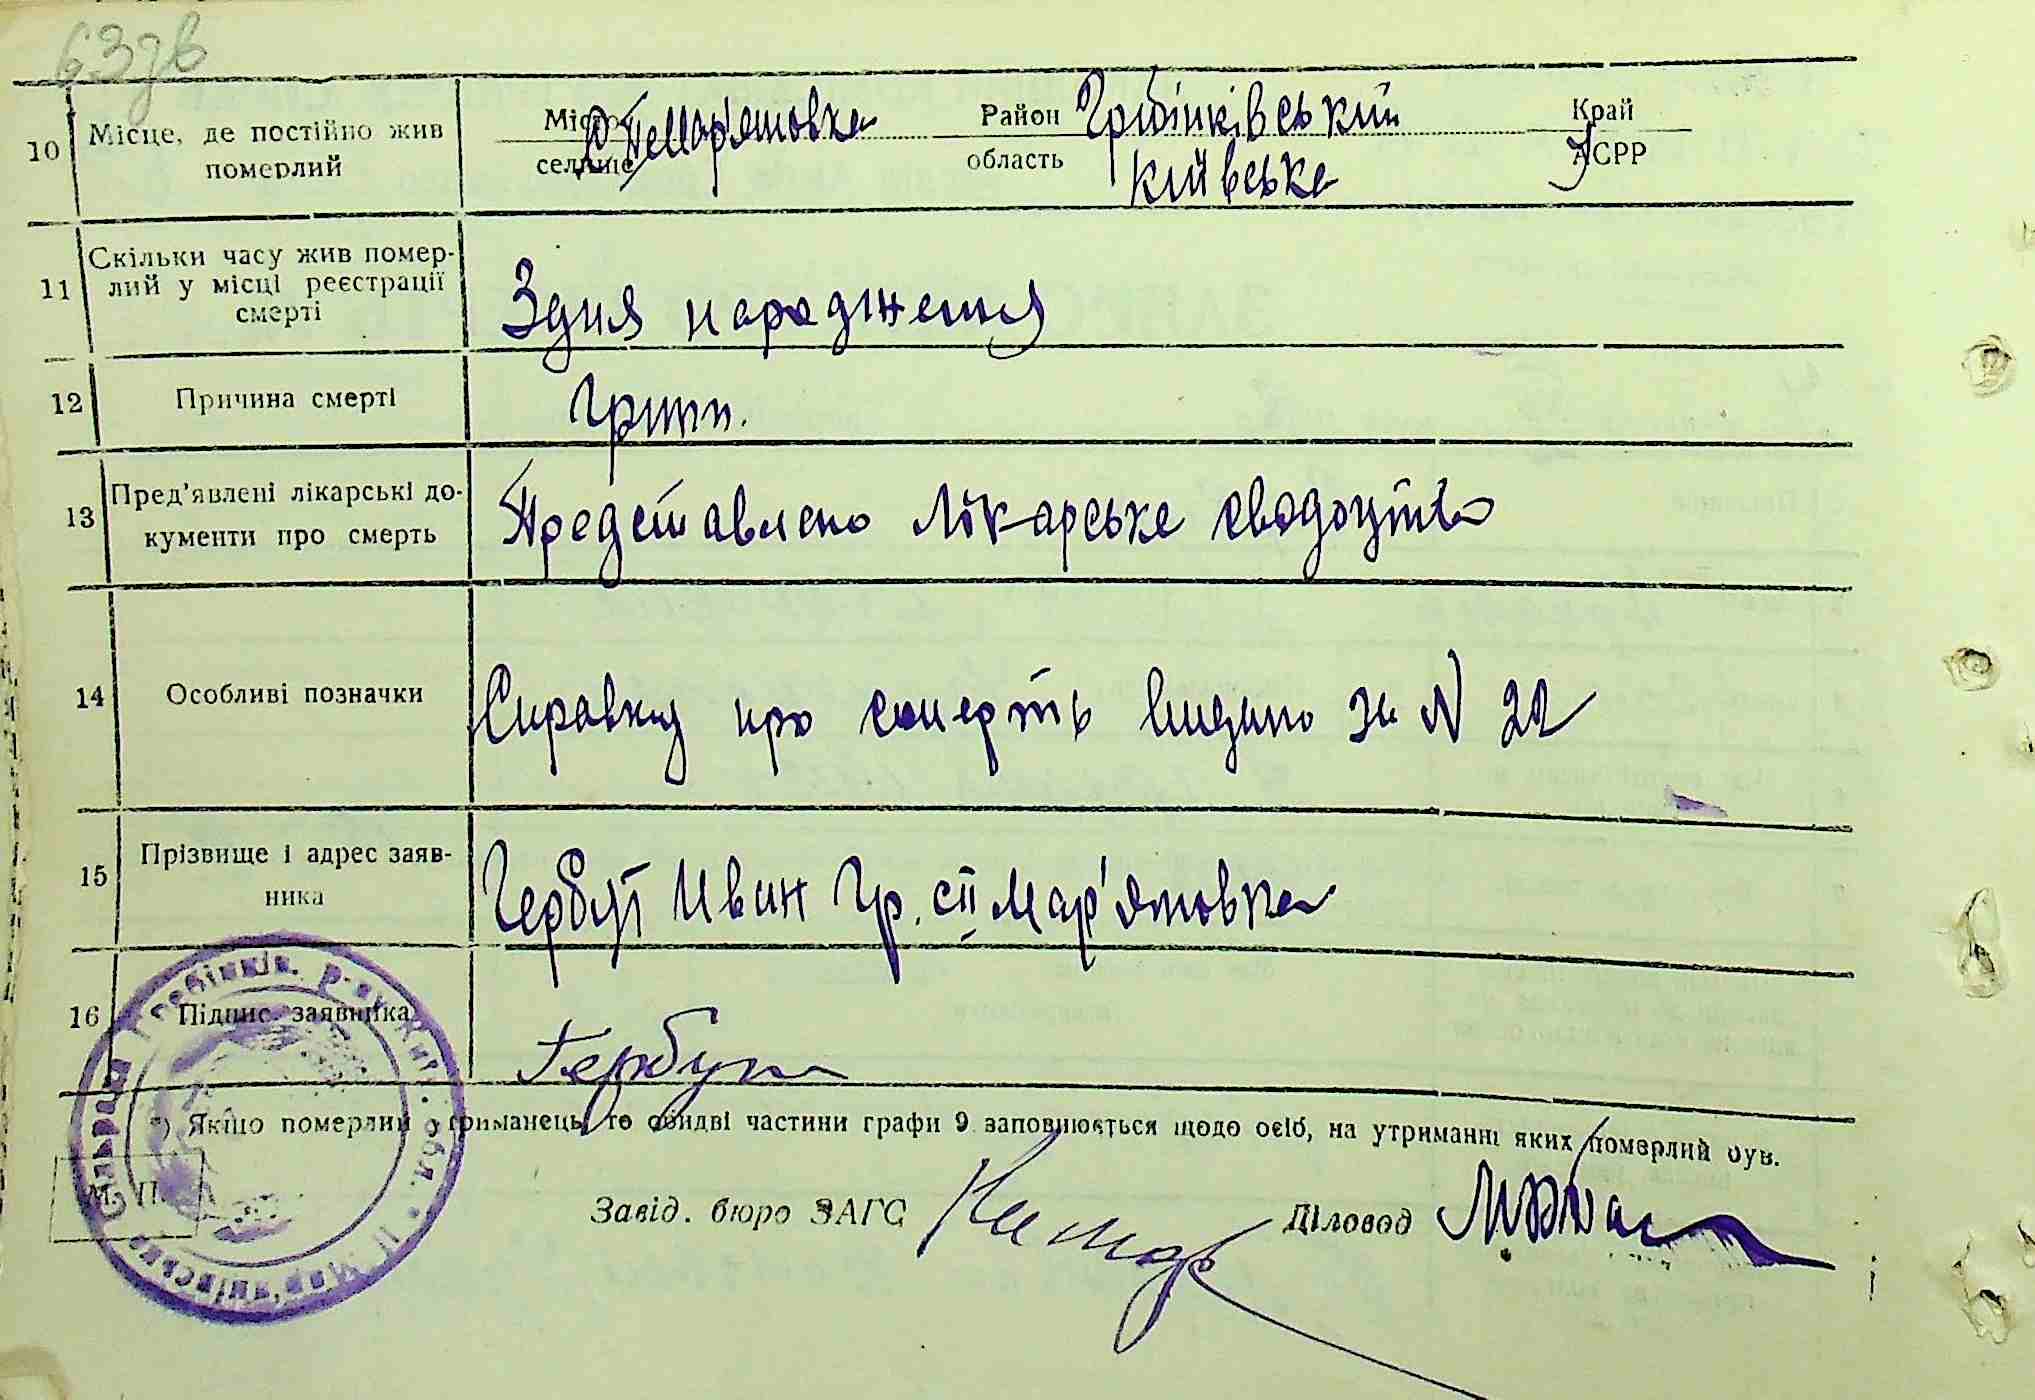 63зв
10 Місце, де постійно жив Місто Мар'яновка Район Грибінківський Край
померлий селище область Київська АСРР
11 Скільки часу жив помер-
лий у місці реєстрації
смерті Здня народження
12 Причина смерті Грипп.
13 Пред'явлені лікарські до-
кументи про смерть Представлено лікарське сводоцтво
14 Особливі позначки Справку про смерть видано за N 22
15 Прізвище і адрес заяв-
ника Гербут Иван Гр. сП Мар'яновка
16 Підпис заявника Гербут
*) Якщо померлий утриманець, то обидві частини графи 9 заповнюється щодо осіб, на утриманні яких померлий був.
М. П.
Завід. бюро ЗАГС Діловод